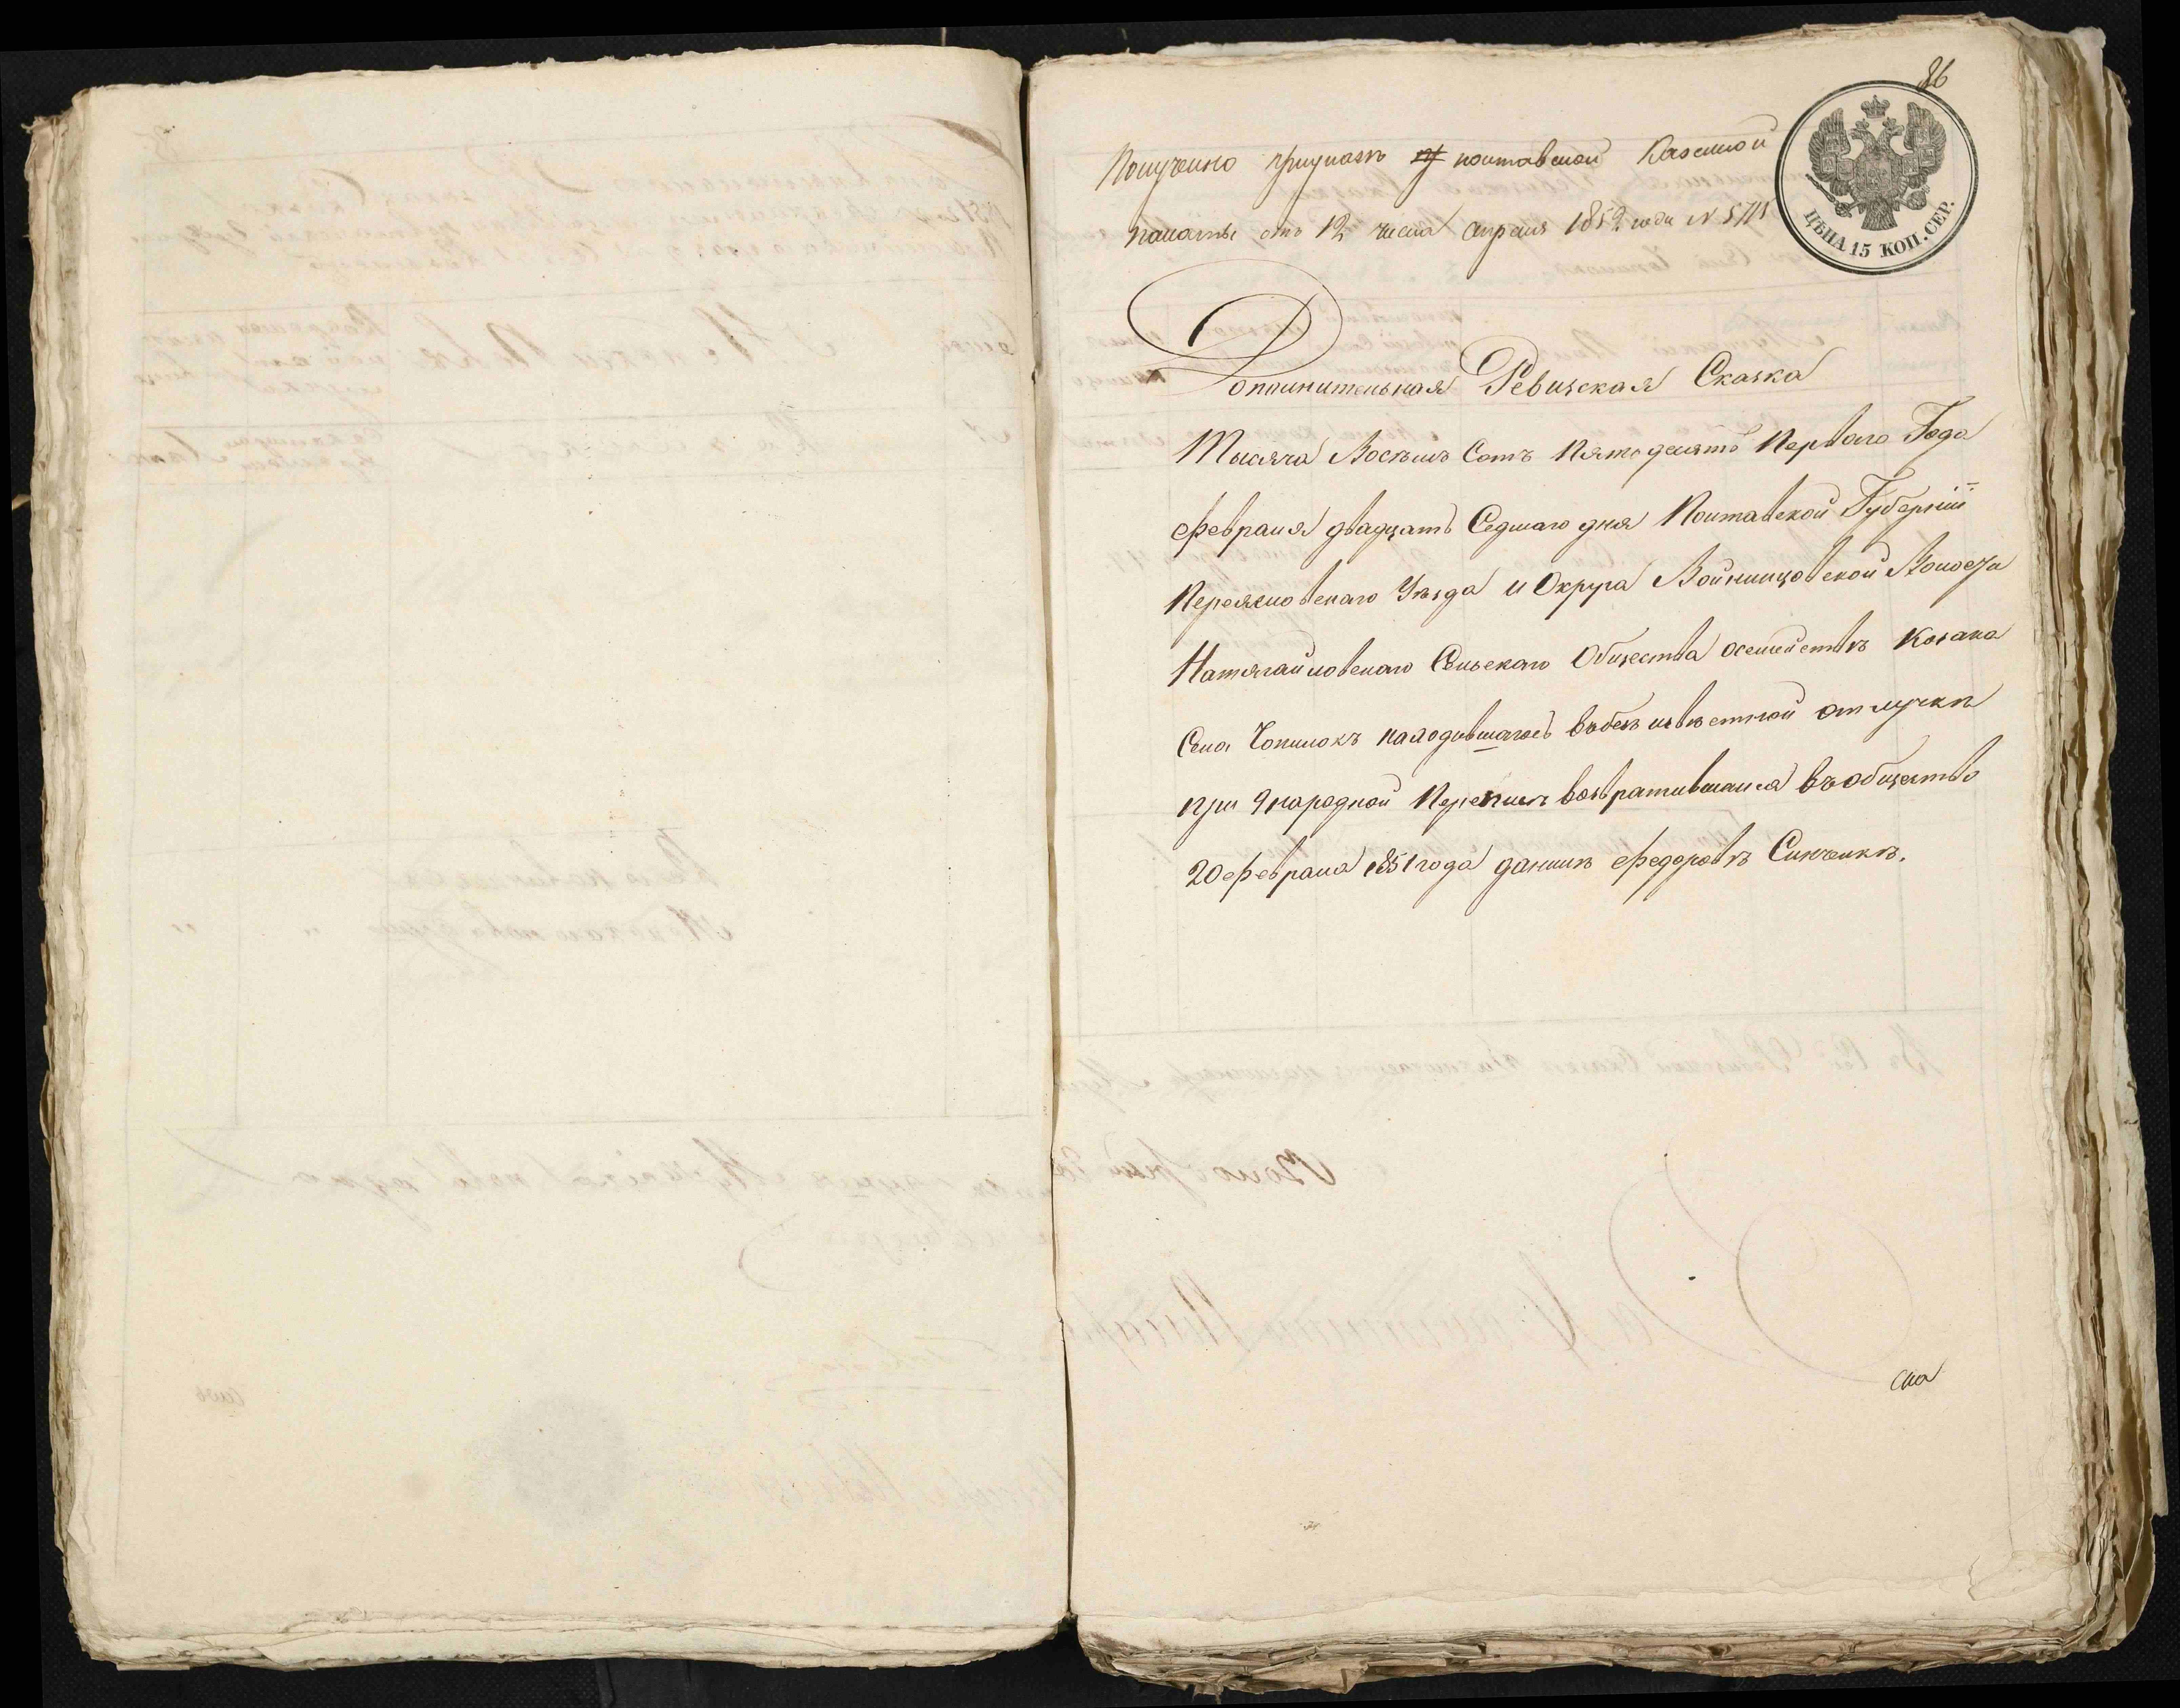 86
Получено приуказѣ полтавской Казенной
палаты отъ 12 числа апреля 1852 года N 5715
ЦѢНА 15 КОП. СЕР.
Дополнительная Ревизская Сказка
Тысяча Восемь Сотъ Пятьдесятъ Перваго Года
февраля двадцать Седмаго дня Полтавской Губерніи
Переяславскаго Уѣзда и Округа Войнинцовской Волости
Натягайловскаго Сельскаго Общества осемействѣ Козака
Села Чопилокъ находившагось вобезъизвѣстной отлучкѣ
при 9 народной Переписи возвратившагося въобщество
20 февраля 1851 года данилѣ федоровѣ
Села